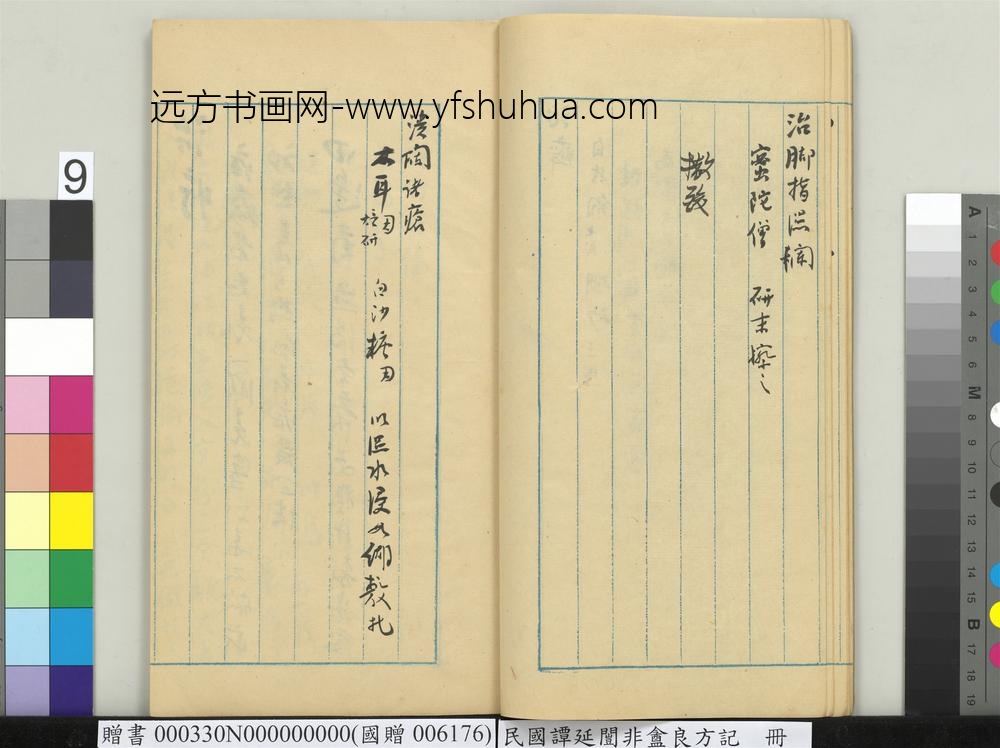 远方书画网-www.yfshuhua.com
治脚指溼爛
蜜陀僧 研末擦之
撒發
木耳 焙研 白沙糖 以溼水浸如 敷扎
9
贈書 000330N000000000(國贈 006176)
民國譚延闓非盦良方記 冊
A 1 2 3 4 5 6 M 8 9 10 11 12 13 14 15 B 17 18 19